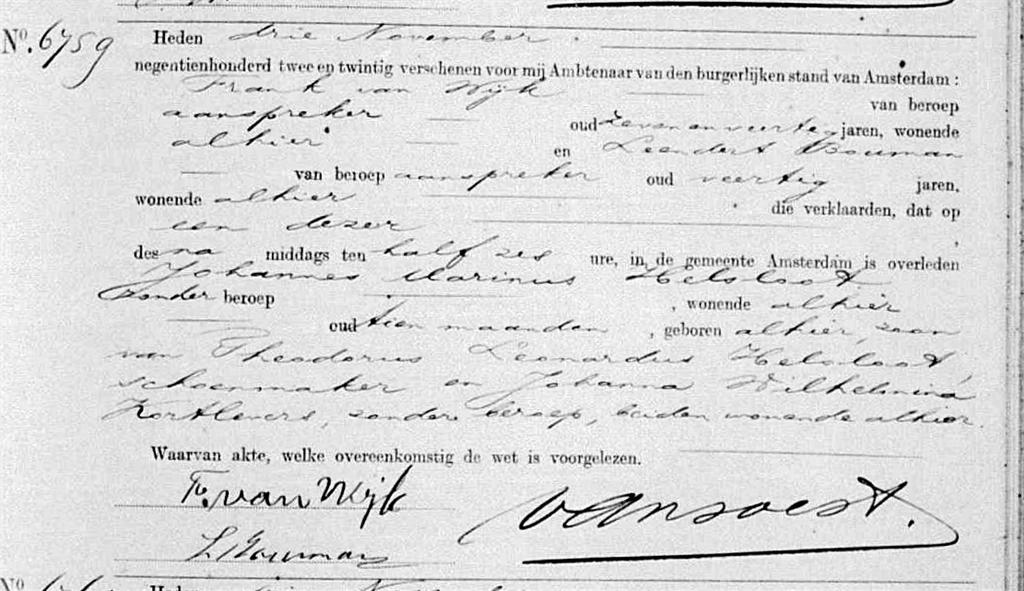 No. 6759 Heden drie November.
negentienhonderd twee en twintig verschenen voor mij Ambtenaar van den burgerlijken stand van Amsterdam :
Frank van Wijk van beroep
aanspreker oud zevenenveertig jaren, wonende
alhier en Leendert Bouman
van beroep aanspreker oud veertig jaren,
wonende alhier die verklaarden, dat op
een dezer ,
des na middags ten half zes ure, in de gemeente Amsterdam is overleden
Johannes Marinus Helsloot
zonder beroep , wonende alhier
oud tien maanden , geboren alhier, zoon
van Theodorus Leonardus Helsloot,
schoenmaker en Johanna Wilhelmina
Kortlevers, zonder beroep, beiden wonende alhier.
Waarvan akte, welke overeenkomstig de wet is voorgelezen.
F. van Wijk
van Soest.
L Bouman
No Heden